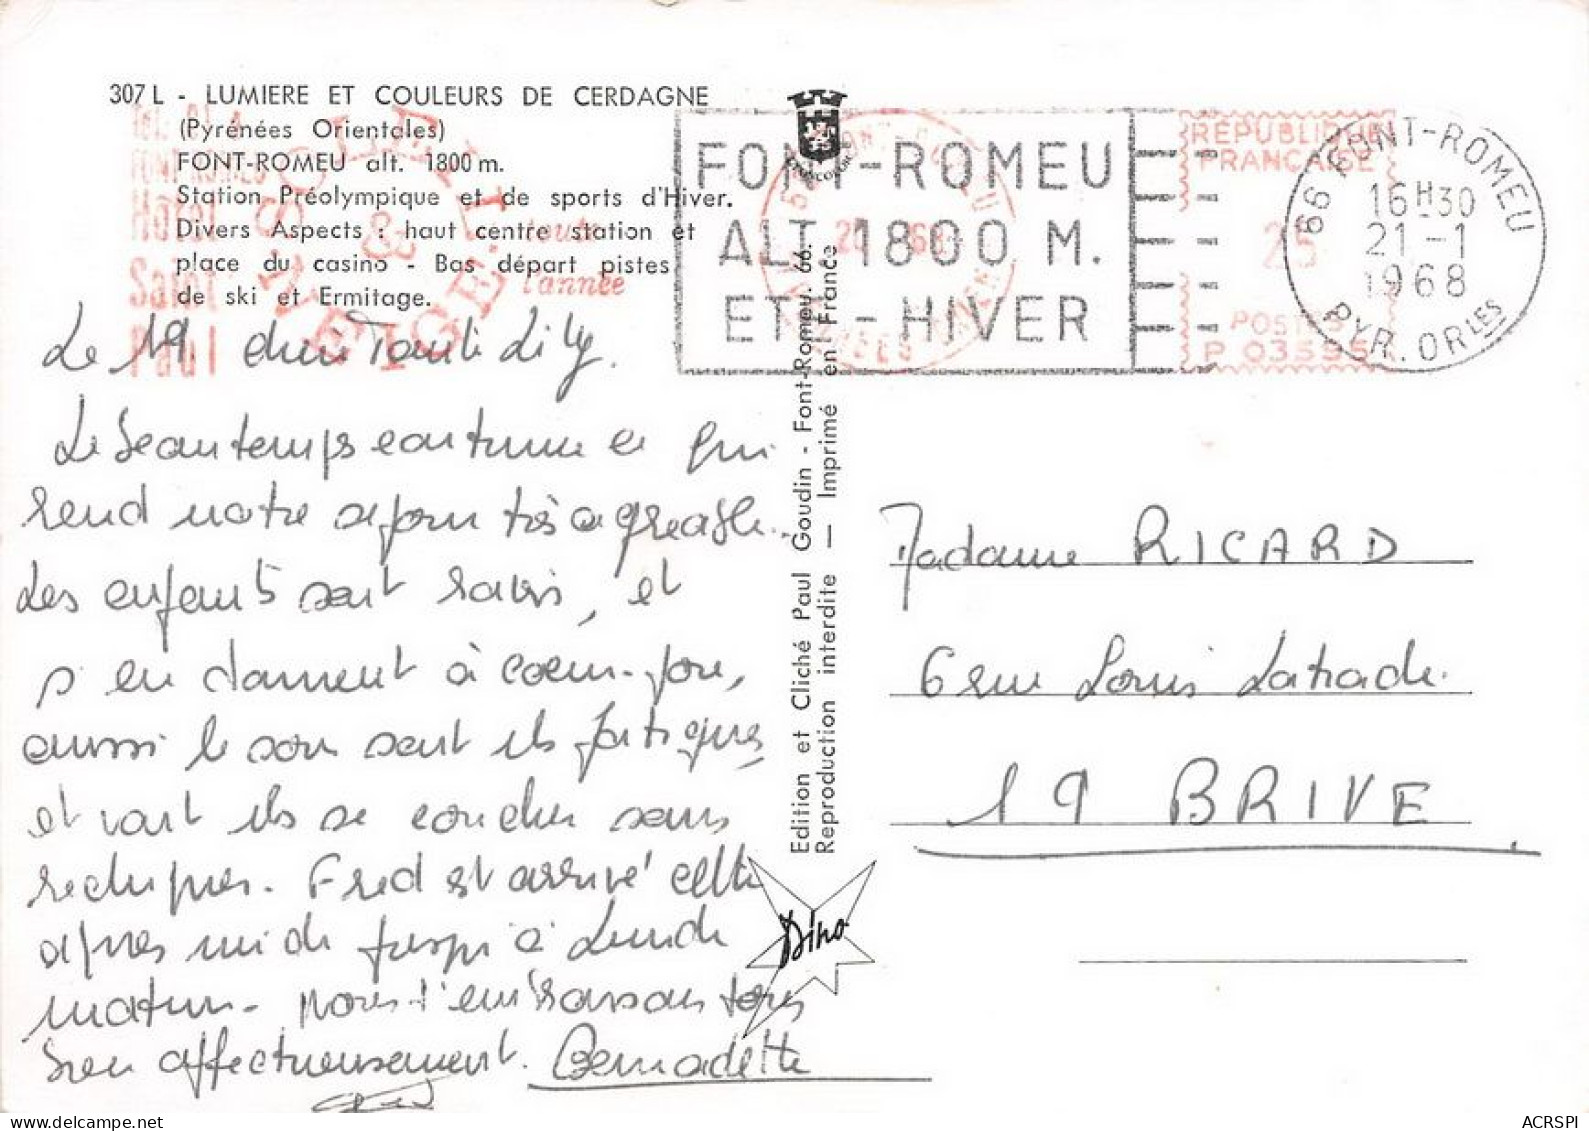 307 L - LUMIERE ET COULEURS DE CERDAGNE
(Pyrénées Orientales)
FONT-ROMEU alt. 1800 m.
Station Préolympique et de sports d'Hiver.
Divers Aspects : haut centre station et
place du casino - Bas départ pistes
de ski et Ermitage.
Hotel
Saint
Paul
SOLEIL
&
NEIGE
toute
l'année
FONT-ROMEU
ALT. 1800 M.
ETE - HIVER
REPUBLIQUE
FRANCAISE
25
POSTES
P 03595
66 FONT-ROMEU
16H30
21 -1
1968
PYR. ORLES
Le 19. Lily.
Le beau temps continue ce qui
rend notre séjour très agréable.
Les enfants sont ravis, et
s'en donnent à coeur-joie,
aussi le soir sont ils fatigués
et vont ils se coucher sans
. Fred est arrivé cette
après midi jusqu'à Lundi
matin. Nous t'embrassons tous
bien affectueusement. Bernadette
Edition et Cliché Paul Goudin - Font-Romeu. 66.
Reproduction interdite — Imprimé en France
Dino
Madame RICARD
6 rue Louis Latrade.
19 BRIVE
delcampe.net
ACRSPI